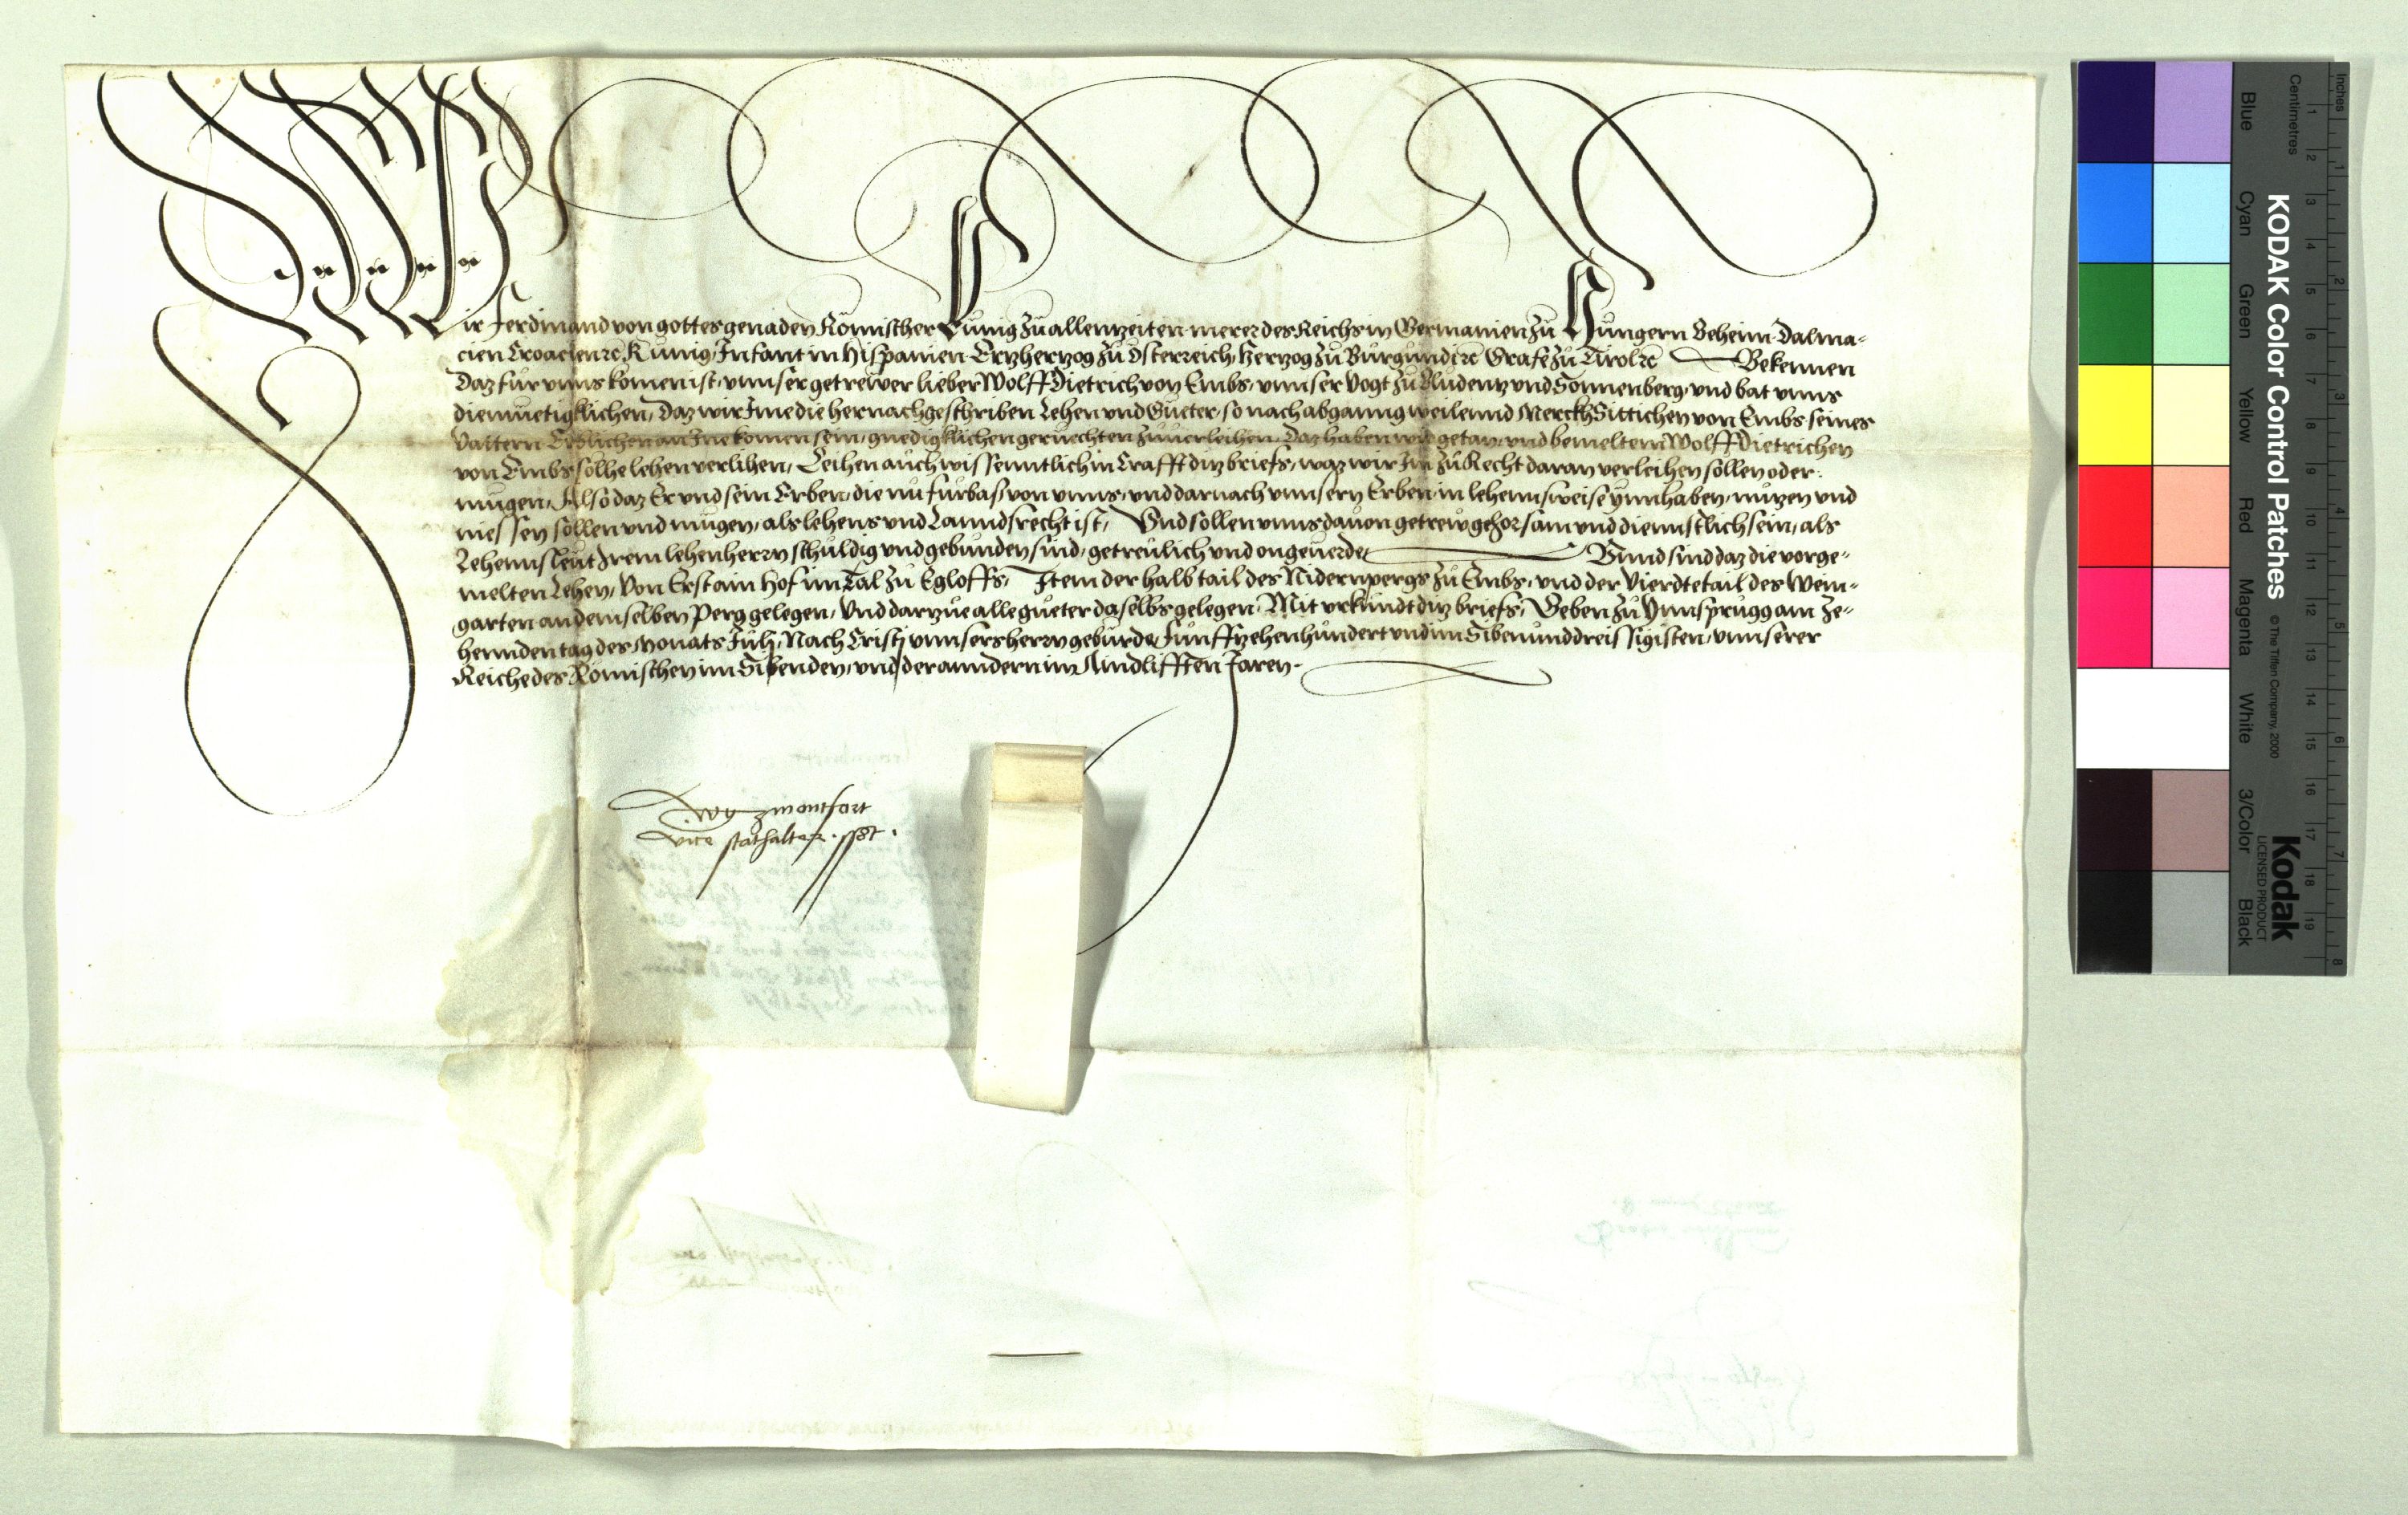 Wir Ferdinand von gottes genaden Römischer Künig zů allenntzeiten merer des Reichs in Germanien zů Hůngern Beheim Dalma-
cien Croacien ꝛc Kůnig, Infant in Hispanien Ertzhertzog zů Osterreich, Hertzog zů Bůrgůndi ꝛc Grafe zů Tirol ꝛc Bekennen
Daz fůr vnns komen ist, vnnser getrewer lieber Wolff Dietrich von Embs, vnnser Vogt zů Blůdentz vnd Sonnenberg, vnd bat vnns
diemůetigklichen, daz wir Ime die hernachgeschriben Lehen vnd Gůeter, so nach abganng weilennd Merckh Sittichen von Embs seines
Vattern Erblichen an Ine komen sein, gnedigklichen gerůechten zůuerleihen, Daz haben wir getan, vnd bemeltem Wolff Dietrichen
von Embs solhe lehen verlihen, Leihen aůch wissenntlich in Crafft ditz briefs, waz wir Im zů Recht daran verleihen sollen oder
můgen, Also daz Er vnd sein Erben, die nů fůrbas von vnns, vnd darnach vnnsern Erben in lehennsweise ynnhaben, nůtzen vnd
niessen sollen vnd můgen, als lehens vnd Lanndsrecht ist, Vnd sollen vnns dauon getrew gehorsam vnd diennstlich sein, als
Lehennsleůt Irem lehenherrn schůldig vnd gebůnden sind, getreůlich vnd ongeuerde Vnnd sind daz die vorge-
melten Lehen, Von Erst ain Hof im Tal zů Egloffs, Item der halb tail des Nidernpergs zů Embs, vnd der Vierdte tail des Wein-
garten an demselben Perg gelegen, Vnd dartzůe alle gůeter daselbs gelegen, Mit vrkůndt ditz briefs, Geben zů Ynnsprůgg am Ze-
henden tag des Monats Jůlj, Nach Cristj vnnsers herrn gebůrde, Fůnfftzehenhůndert vnd im Sibenůnddreissigisten, vnnserer
Reiche des Römischen im Sibenden, vnd der anndern im Aindlifften Jaren.
W g z montfort
vice stathalter sst
KODAK Color Control Patches © The Tiffen Company, 2000
Kodak
LICENSED PRODUCT
Blue Cyan Green Yellow Red Magenta White 3/Color Black
Inches 1 2 3 4 5 6 7 8
Centimetres 1 2 3 4 5 6 7 8 9 10 11 12 13 14 15 16 17 18 19